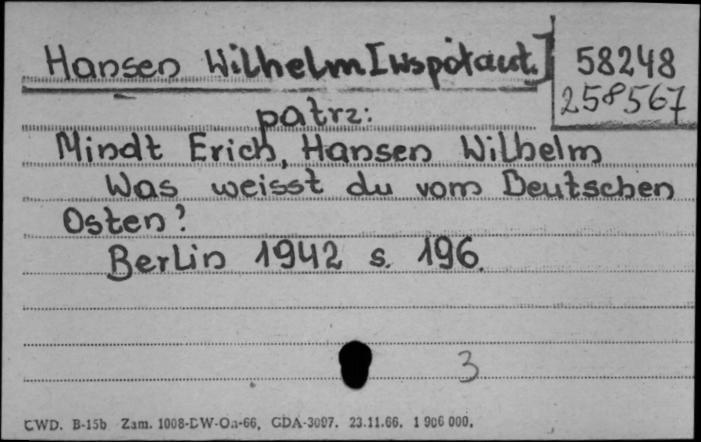 Hansen Wilhelm [współaut.] 58248
258567
patrz:
Mindt Erich, Hansen Wilhelm
Was weisst du vom Deutschen
Osten?
Berlin 1942 s. 196.
3
CWD. B-15b Zam. 1008-DW-Oa-66. GDA-3097. 23.11.66. 1 906 000.